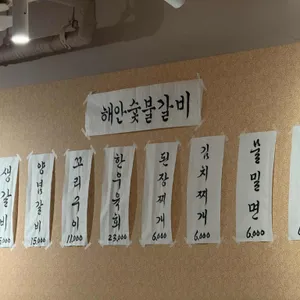 해안숯불갈비
생갈비
5,000
양념갈비
15,000
꼬리구이
11,000
한우육회
23,000
된장찌개
6,000
김치찌개
6,000
물밀면
6,000